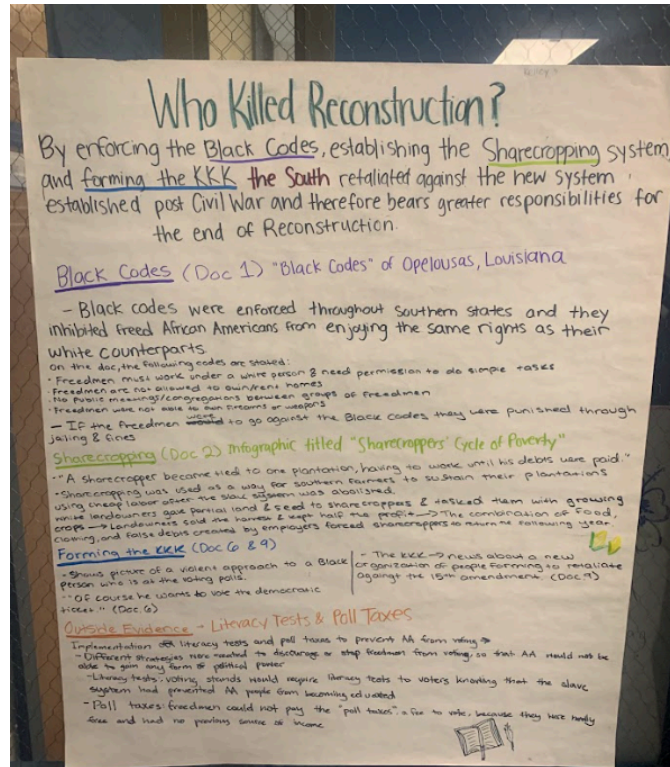 Who Killed Reconstruction?
By enforcing the Black Codes, establishing the Sharecropping system
and forming the KKK the South retaliated against the new system
established post Civil War and therefore bears greater responsibilities for
the end of Reconstruction.
Black Codes (Doc 1) "Black Codes" of Opelousas, Louisiana
- Black codes were enforced throughout Southern states and they
inhibited freed African Americans from enjoying the same rights as their
white counterparts.
On the doc, the following codes are stated:
· Freedmen must work under a white person & need permission to do simple tasks
· Freedmen are not allowed to own/rent homes
· No public meetings/congregations between groups of freedmen
· Freedmen were not able to own firearms or weapons
- If the freedmen were to go against the Black Codes they were punished through
jailing & fines
Sharecropping (Doc 2) Infographic titled "Sharecroppers' Cycle of Poverty"
· "A sharecropper became tied to one plantation, having to work until his debts were paid."
· Sharecropping was used as a way for southern farmers to sustain their plantations
using cheap labor after the slave system was abolished.
white landowners gave partial land & seed to sharecroppers & tasked them with growing
crops → Landowners sold the harvest & kept half the profit → The combination of food,
clothing, and false debts created by employers forced sharecroppers to return the following year
Forming the KKK (Doc 6 & 9)
· Shows picture of a violent approach to a Black
person who is at the voting polls.
· "Of course he wants to vote the democratic
ticket" (Doc 6)
- The KKK → news about a new
organization of people forming to retaliate
against the 15th amendment. (Doc 9)
Outside Evidence - Literacy Tests & Poll Taxes
Implementation of literacy tests and poll taxes to prevent AA from voting →
- Different strategies were created to discourage or stop freedmen from voting, so that AA would not be
able to gain any form of political power
- Literacy tests: voting stands would require literacy tests to voters knowing that the slave
system had prevented AA people from becoming educated
- Poll taxes: freedmen could not pay the "poll taxes", a fee to vote, because they were newly
free and had no previous source of income